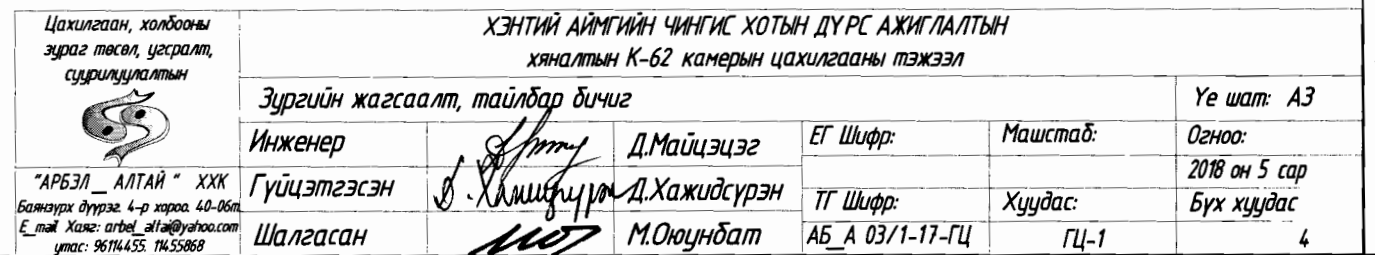 Цахилгаан, холбооны
зураг төсөл, угсралт,
суурилуулалтын
"АРБЭЛ__АЛТАЙ " ХХК
Баянзүрх дүүрэг. 4-р хороо. 40-06т
E_mail Хаяг: arbel_altai@yahoo.com
утас: 96114455. 11455868
ХЭНТИЙ АЙМГИЙН ЧИНГИС ХОТЫН ДҮРС АЖИГЛАЛТЫН
хяналтын К-62 камерын цахилгааны тэжээл
Зургийн жагсаалт, тайлбар бичиг
Үе шат: АЗ
Инженер
Д.Майцэцэг
ЕГ Шифр:
Машстаб:
Огноо:
2018 он 5 сар
Гүйцэтгэсэн
Д.Хажидсүрэн
ТГ Шифр:
Хуудас:
Бүх хуудас
Шалгасан
М.Оюунбат
АБ_А 03/1-17-ГЦ
ГЦ-1
4